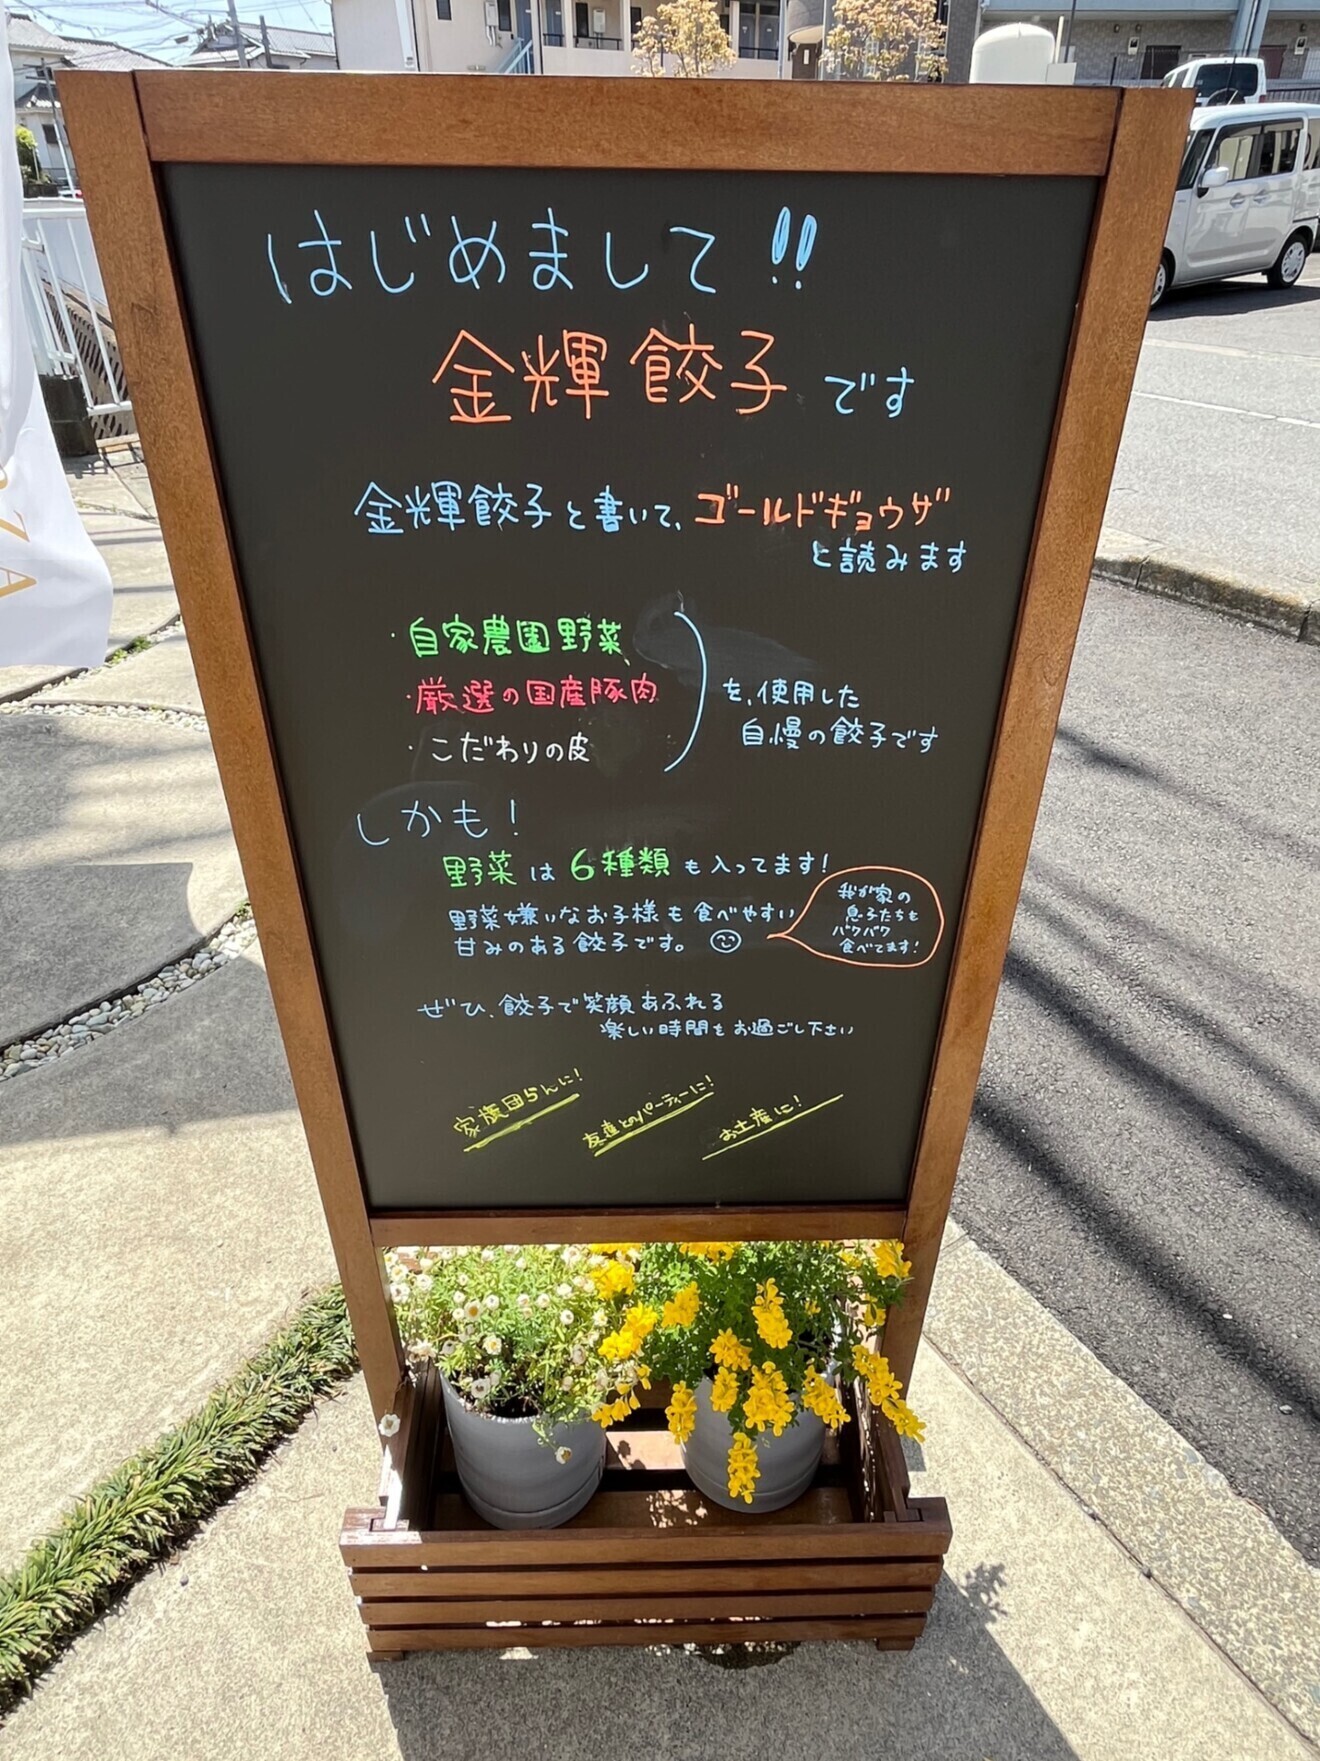 はじめまして!!
金輝餃子です
金輝餃子と書いて、ゴールドギョウザ
と読みます
・自家農園野菜
・厳選の国産豚肉
・こだわりの皮
を、使用した
自慢の餃子です
しかも!
野菜は6種類も入ってます!
野菜嫌いなお子様も食べやすい
甘みのある餃子です。
我が家の
息子たちも
バクバク
食べてます!
ぜひ、餃子で笑顔あふれる
楽しい時間をお過ごし下さい
家族団らんに!
友達とのパーティーに!
お土産に!
ZA